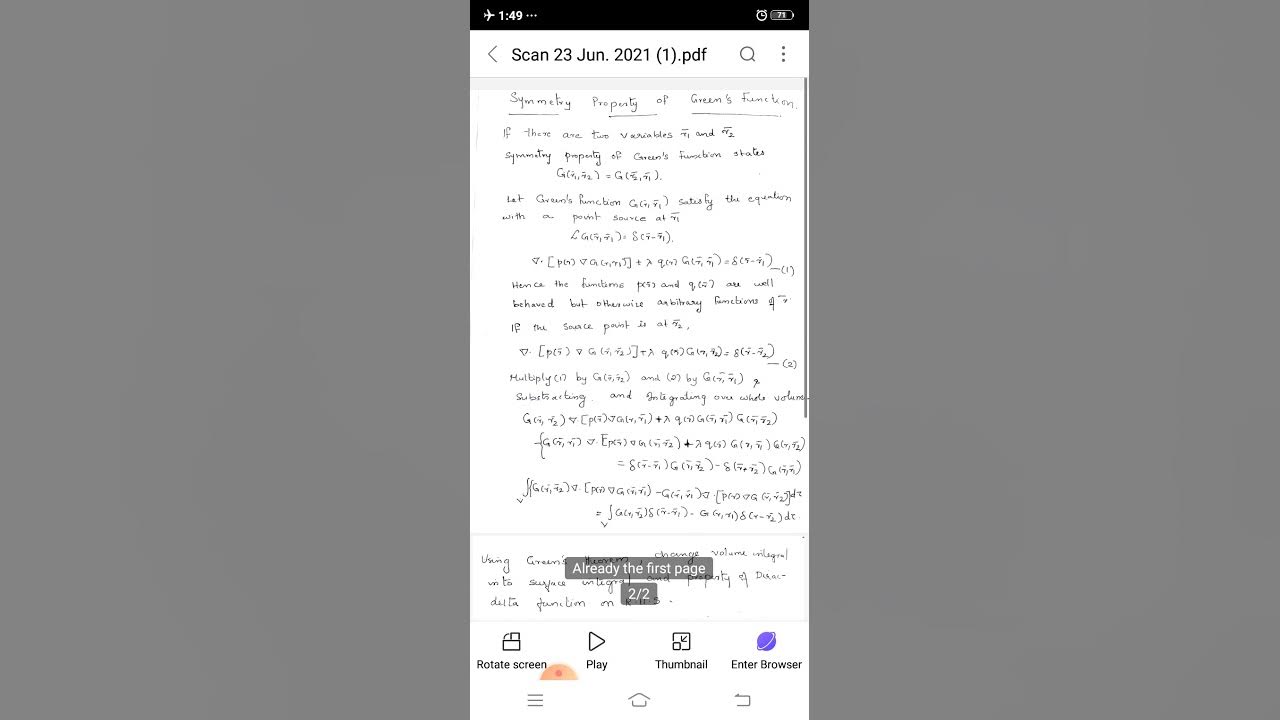 1:49 ...
71
Scan 23 Jun. 2021 (1).pdf
Symmetry Property of Green's Function.
If there are two variables r̄₁ and r̄₂
Symmetry property of Green's function states
G(r̄₁,r̄₂) = G(r̄₂,r̄₁).
Let Green's function G(r̄,r̄₁) satisfy the equation
with a point source at r̄₁
ℒ G(r̄,r̄₁) = δ(r̄-r̄₁).
∇·[p(r) ∇ G(r,r₁)] + λ q(r) G(r̄,r̄₁) = δ(r̄-r̄₁) —(1)
Hence the functions p(r̄) and q(r̄) are well
behaved but otherwise arbitrary functions of r̄
If the source point is at r̄₂,
∇·[p(r̄) ∇ G(r̄,r̄₂)] + λ q(r) G(r,r₂) = δ(r̄-r̄₂) —(2)
Multiply (1) by G(r̄,r̄₂) and (2) by G(r̄,r̄₁) &
Substracting and Integrating over whole volume
G(r̄,r₂) ∇[p(r̄)∇G(r,r̄₁) + λ q(r) G(r̄,r̄₁) G(r̄,r̄₂)
-{G(r̄,r̄₁) ∇·[p(r̄) ∇G(r̄,r̄₂) + λ q(r) G(r,r̄₁) G(r,r̄₂)
= δ(r̄-r̄₁) G(r̄,r̄₂) - δ(r̄-r̄₂) G(r̄,r̄₁)
∫{G(r̄,r̄₂)∇·[p(r)∇G(r̄,r̄₁) - G(r̄,r̄₁)∇·[p(r)∇G(r̄,r̄₂]dτ
V
= ∫ G(r,r̄₂)δ(r̄-r̄₁) - G(r,r₁)δ(r-r̄₂)dτ.
V
Using Green's theorem, change volume integral
into surface integral and property of Dirac-
delta function on R.H.S.
Already the first page
2/2
Rotate screen
Play
Thumbnail
Enter Browser